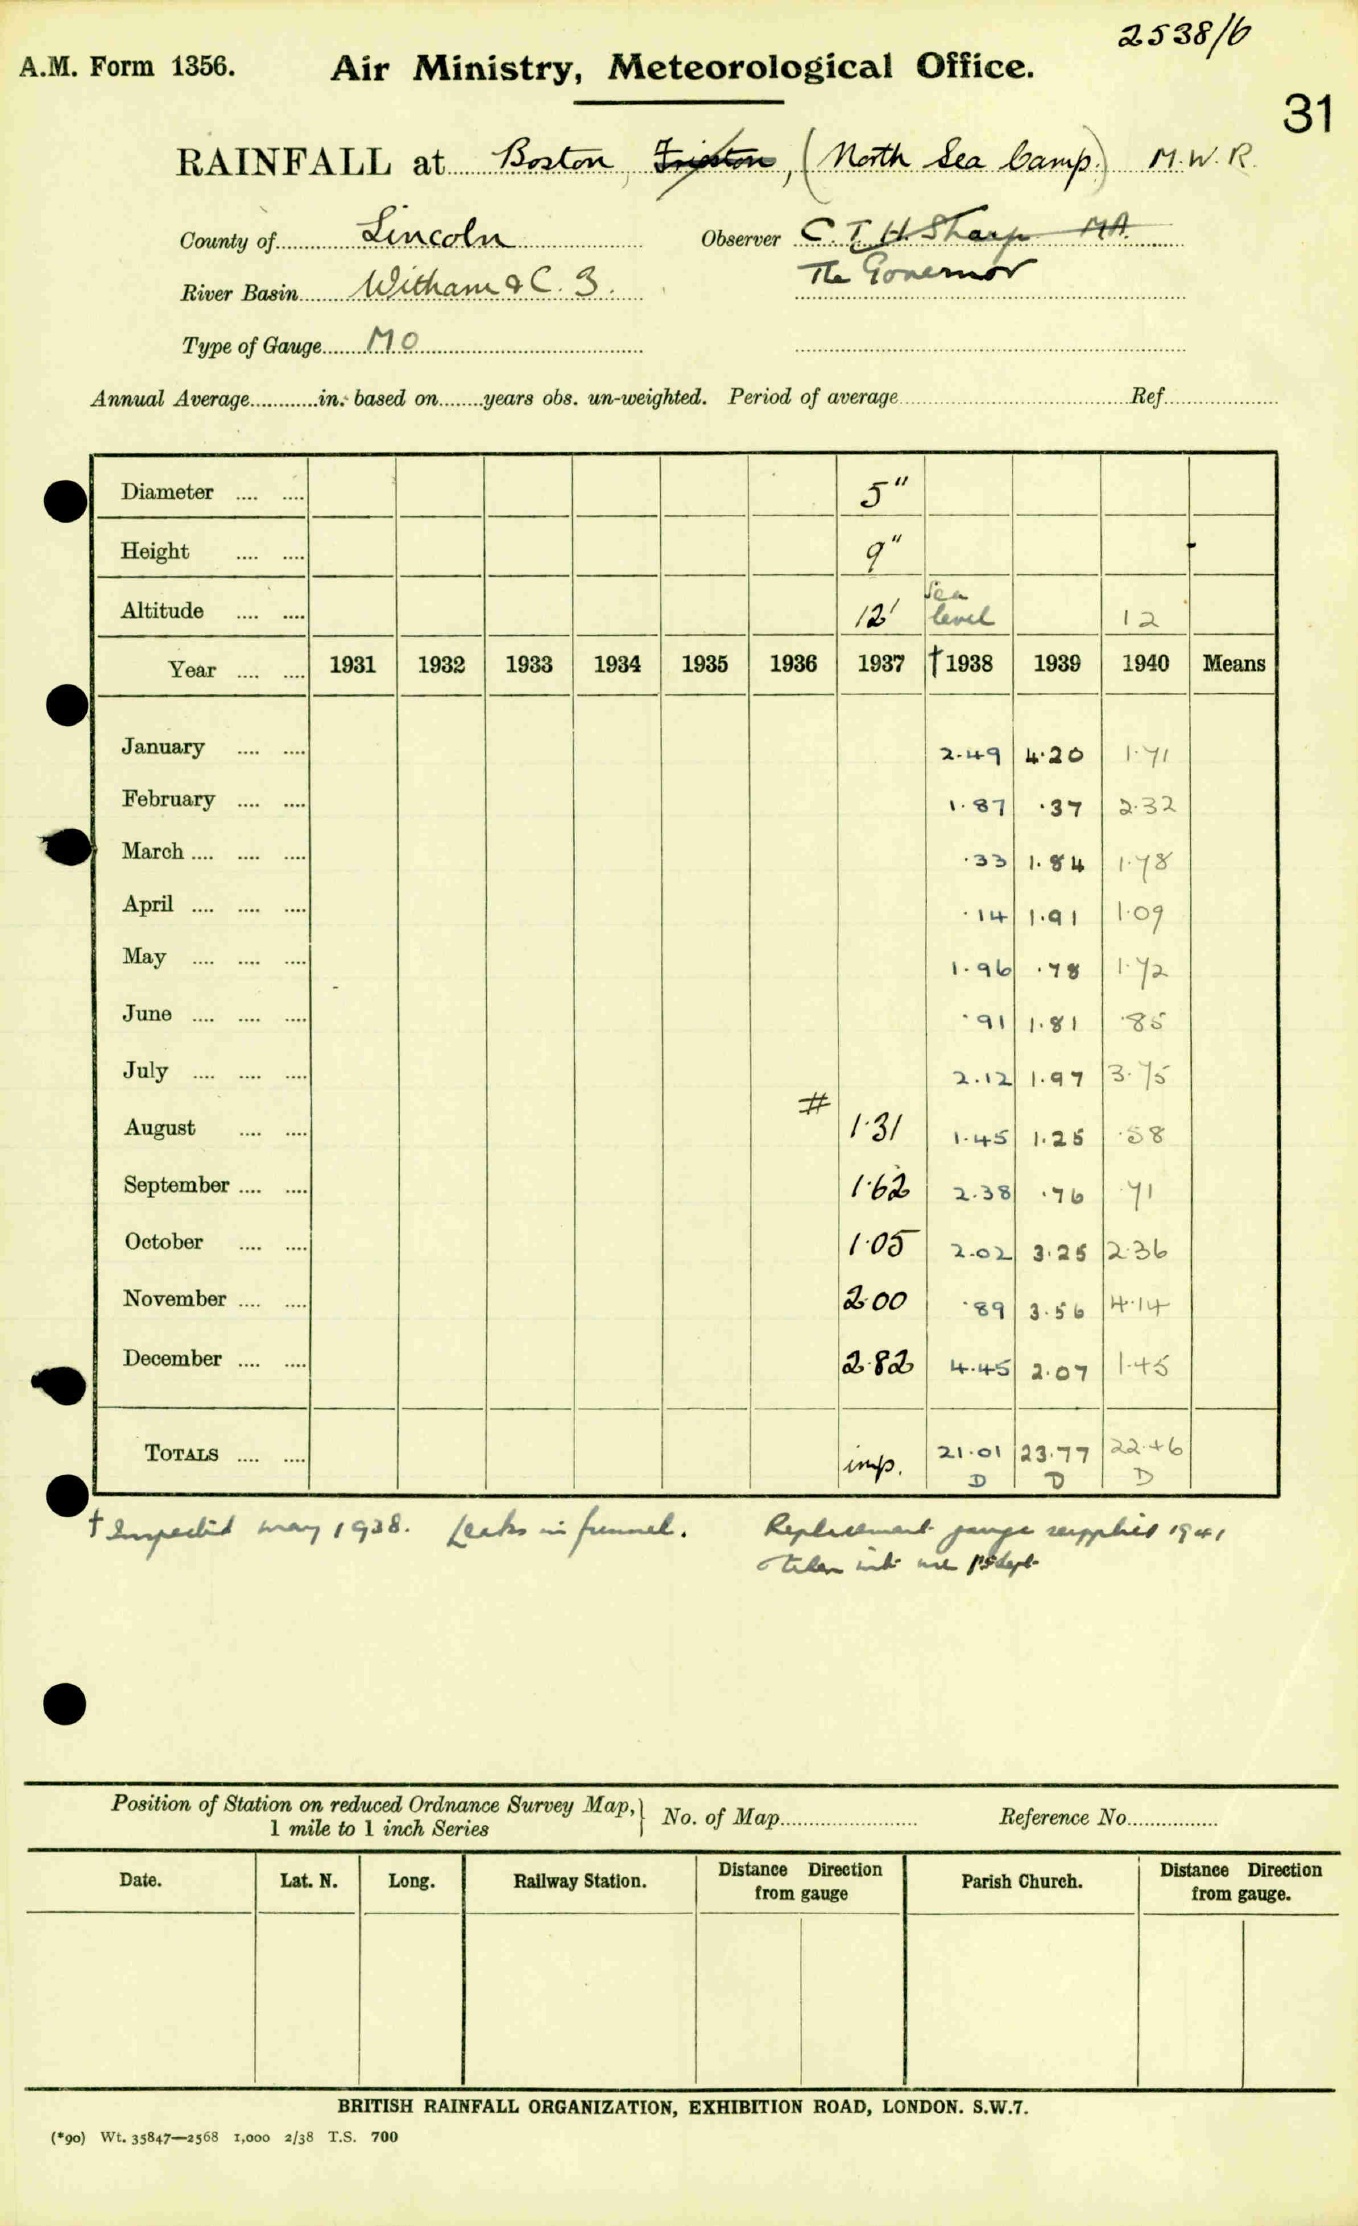 2538/6
A.M. Form 1356. Air Ministry, Meteorological Office.
31
RAINFALL at Boston, Frieston, (North Sea Camp.) M.W.R.
County of Lincoln Observer C.T.H. Sharp MA.
River Basin Witham & C. 3. The Governor
Type of Gauge MO
Annual Average in. based on years obs. un-weighted. Period of average Ref.
Diameter 5"
Height 9"
Altitude 12' Sea level 12
Year 1931 1932 1933 1934 1935 1936 1937 †1938 1939 1940 Means
January 2.49 4.20 1.71
February 1.87 .37 2.32
March .33 1.84 1.78
April .14 1.91 1.09
May 1.96 .78 1.72
June .91 1.81 .85
July 2.12 1.97 3.75
August # 1.31 1.45 1.25 .58
September 1.62 2.38 .76 .71
October 1.05 2.02 3.25 2.36
November 2.00 .89 3.56 4.14
December 2.82 4.45 2.07 1.45
TOTALS imp. 21.01 23.77 22.46
D D D
† Inspected may 1938. Leaks in funnel. Replacement gauge supplied 1941
Taken into use 1st Sept
Position of Station on reduced Ordnance Survey Map, 1 mile to 1 inch Series } No. of Map Reference No.
Date. Lat. N. Long. Railway Station. Distance Direction from gauge Parish Church. Distance Direction from gauge.
BRITISH RAINFALL ORGANIZATION, EXHIBITION ROAD, LONDON. S.W.7.
(*90) Wt. 35847—2568 1,000 2/38 T.S. 700